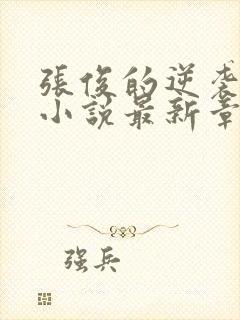 張俊的逆袭
小說最新章
强兵